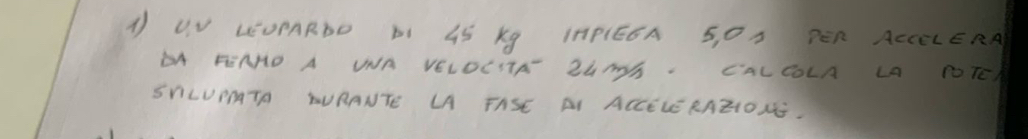 1) UN LEOPARDO DI 45 kg IMPIEGA 5,0 s PER ACCELERA
DA FERMO A UNA VELOCITA' 24 m/s. CALCOLA LA POTE
SVILUPPATA DURANTE LA FASE DI ACCELERAZIONE.